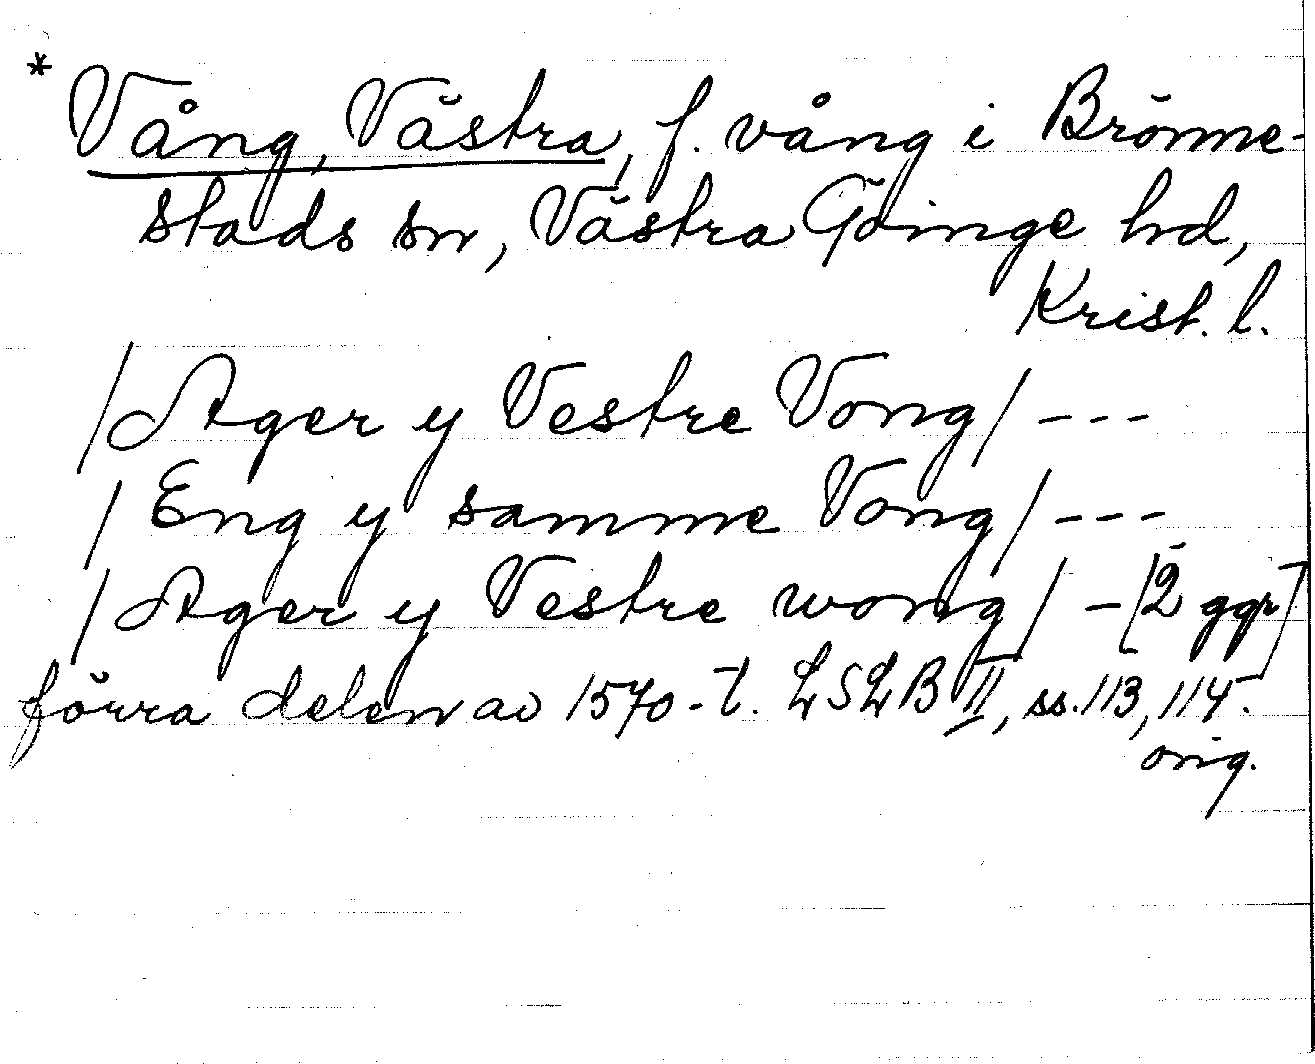 * Vång, Västra, f. vång i Brönne-
stads sn, Västra Göinge hd,
Krist. l.
/Ager y Vestre Vong/ ---
/Eng y samme Vong/ ---
/Ager y Vestre wong/ - [2 ggr]
förra delen av 1570-t. LSLB II, ss. 113, 114.
orig.